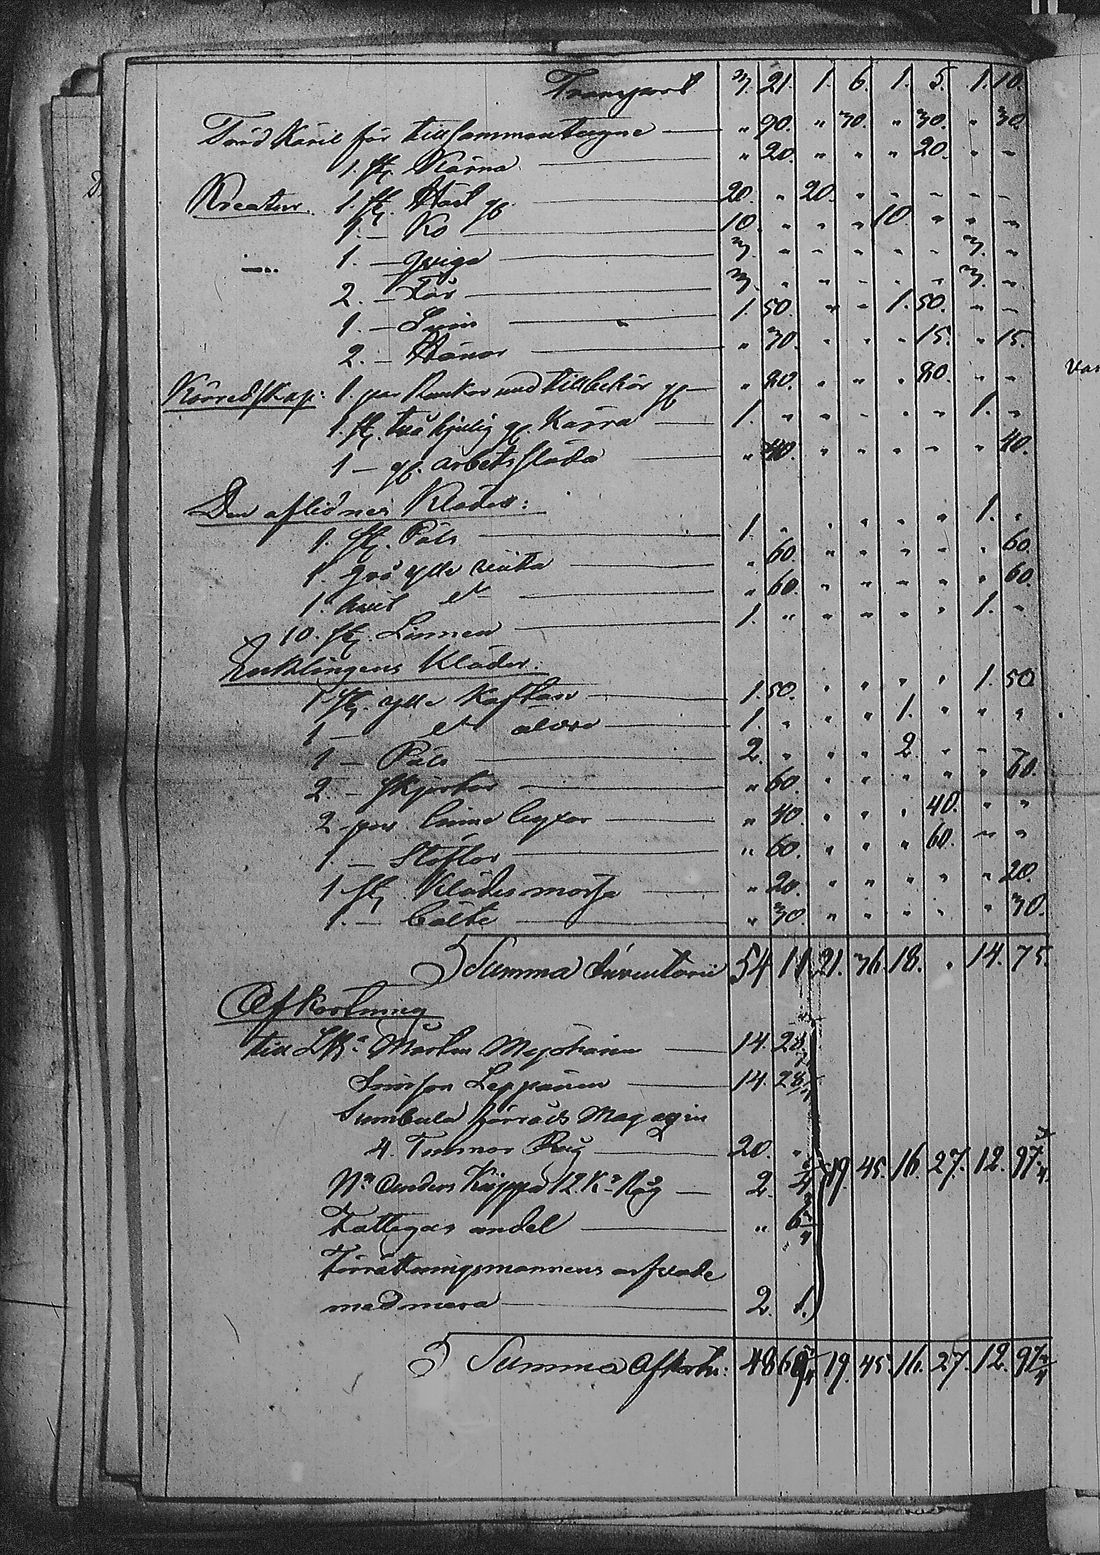 Transport 3. 21. 1. 6. 1. 5. 1. 10.
Träd Käril för tillsammantagne — " 90. " 30. " 30. " 30
1. st. Kärna — " 20. " " " 20. " "
Kreatur. 1. st. Häst gl. 20. " 20. " " " " "
1. — Ko — 10. " " " 10. " " "
1. — Qviga — 3. " " " " " 3. "
2. — Får — 3. " " " " " 3. "
1. — Svin — 1. 50. " " 1. 50. " "
2. — Hönor — " 30. " " " 15. " 15.
Körredskap: 1. par Rankor med tillbehör gl — " 80. " " " 80. " "
1. st. två hjulig gl. Kärra — 1. " " " " " 1. "
1 — gl. arbets släda — " 40. " " " " " 40.
Den aflidnes Kläder:
1. st. Päls — 1. " " " " " 1. "
1. grå ylle — " 60. " " " " " 60.
1. hvit dt — " 60. " " " " " 60
10. st. Linnen — 1. " " " " " 1. "
Enklingens Kläder:
1 st. ylle Kaftan — 1. 50. " " " " 1. 50
1 — dt äldre — 1. " " " 1. " " "
1 — Päls — 2. " " " 2. " " "
2. — Skjortor — " 60. " " " " " 60.
2 par linne byxor — " 40. " " " 40. " "
1 — Stöflor — " 60. " " " 60. " "
1 st. Klädes mössa — " 20. " " " " " 20.
1. — Bälte — " 30 " " " " " 30.
Summa Inventarii 54 11. 21. 36. 18. " 14. 75.
Afkortning
till Mårten — 14. 28
Simson Leppänen — 14. 28
Sumbula förråds Magazin
4. Tunnor Råg — 20. "
Anders Käppä 12 Kr Råg — 2. 19. 45. 16. 27. 12. 97
Fattigas andel — " 6
Förrättningsmannens arfvode
med mera — 2. 1.
Summa Afkortn: 48 69 19. 45. 16. 27. 12. 97